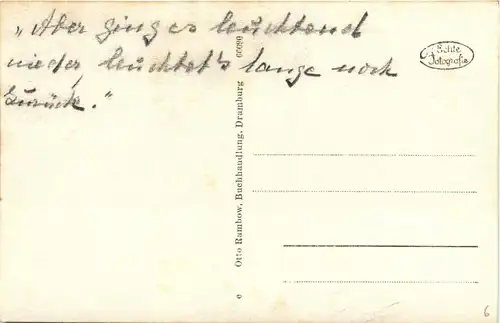 „Aber ging es leuchtend
nieder, leuchtet's lange noch
zurück."
Echte
Fotografie
Otto Rambow, Buchhandlung, Dramburg
6